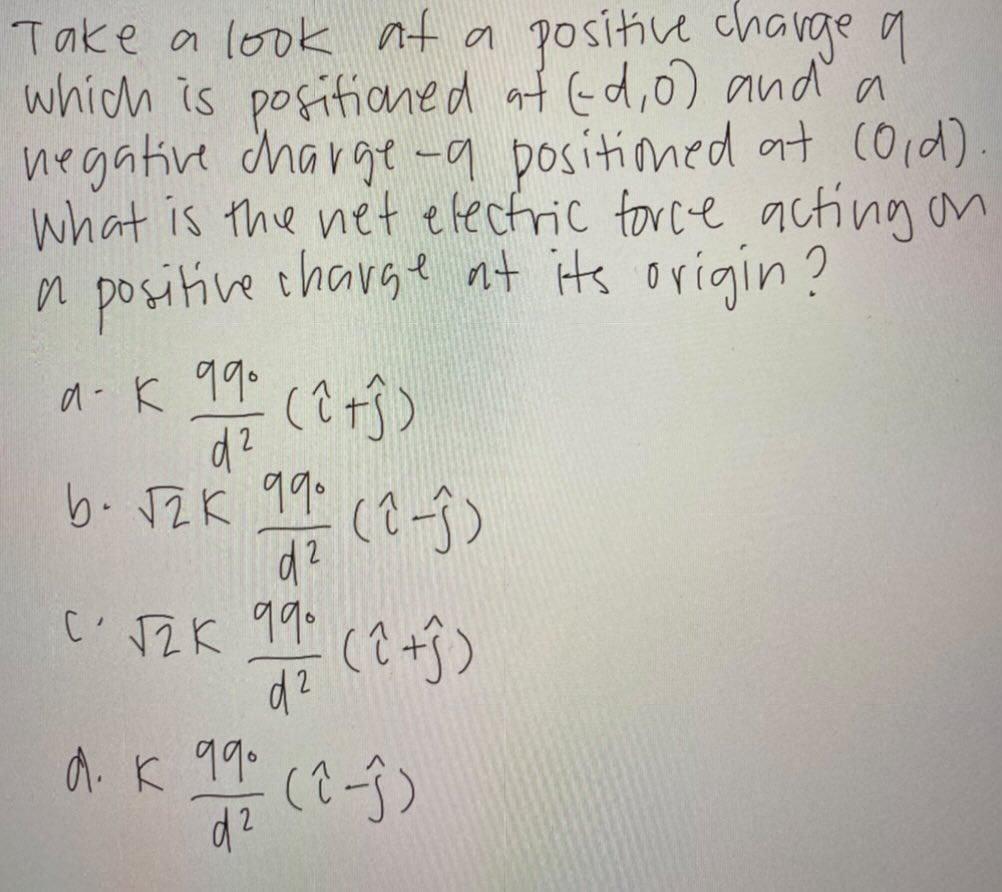 Take a look at a positive charge q
which is positioned at (-d,0) and a
negative charge -q positioned at (0,d).
What is the net electric force acting on
a positive charge at its origin?
a- K qq₀/d² (î+ĵ)
b. √2 K qq₀/d² (î-ĵ)
c. √2 K qq₀/d² (î+ĵ)
d. K qq₀/d² (î-ĵ)